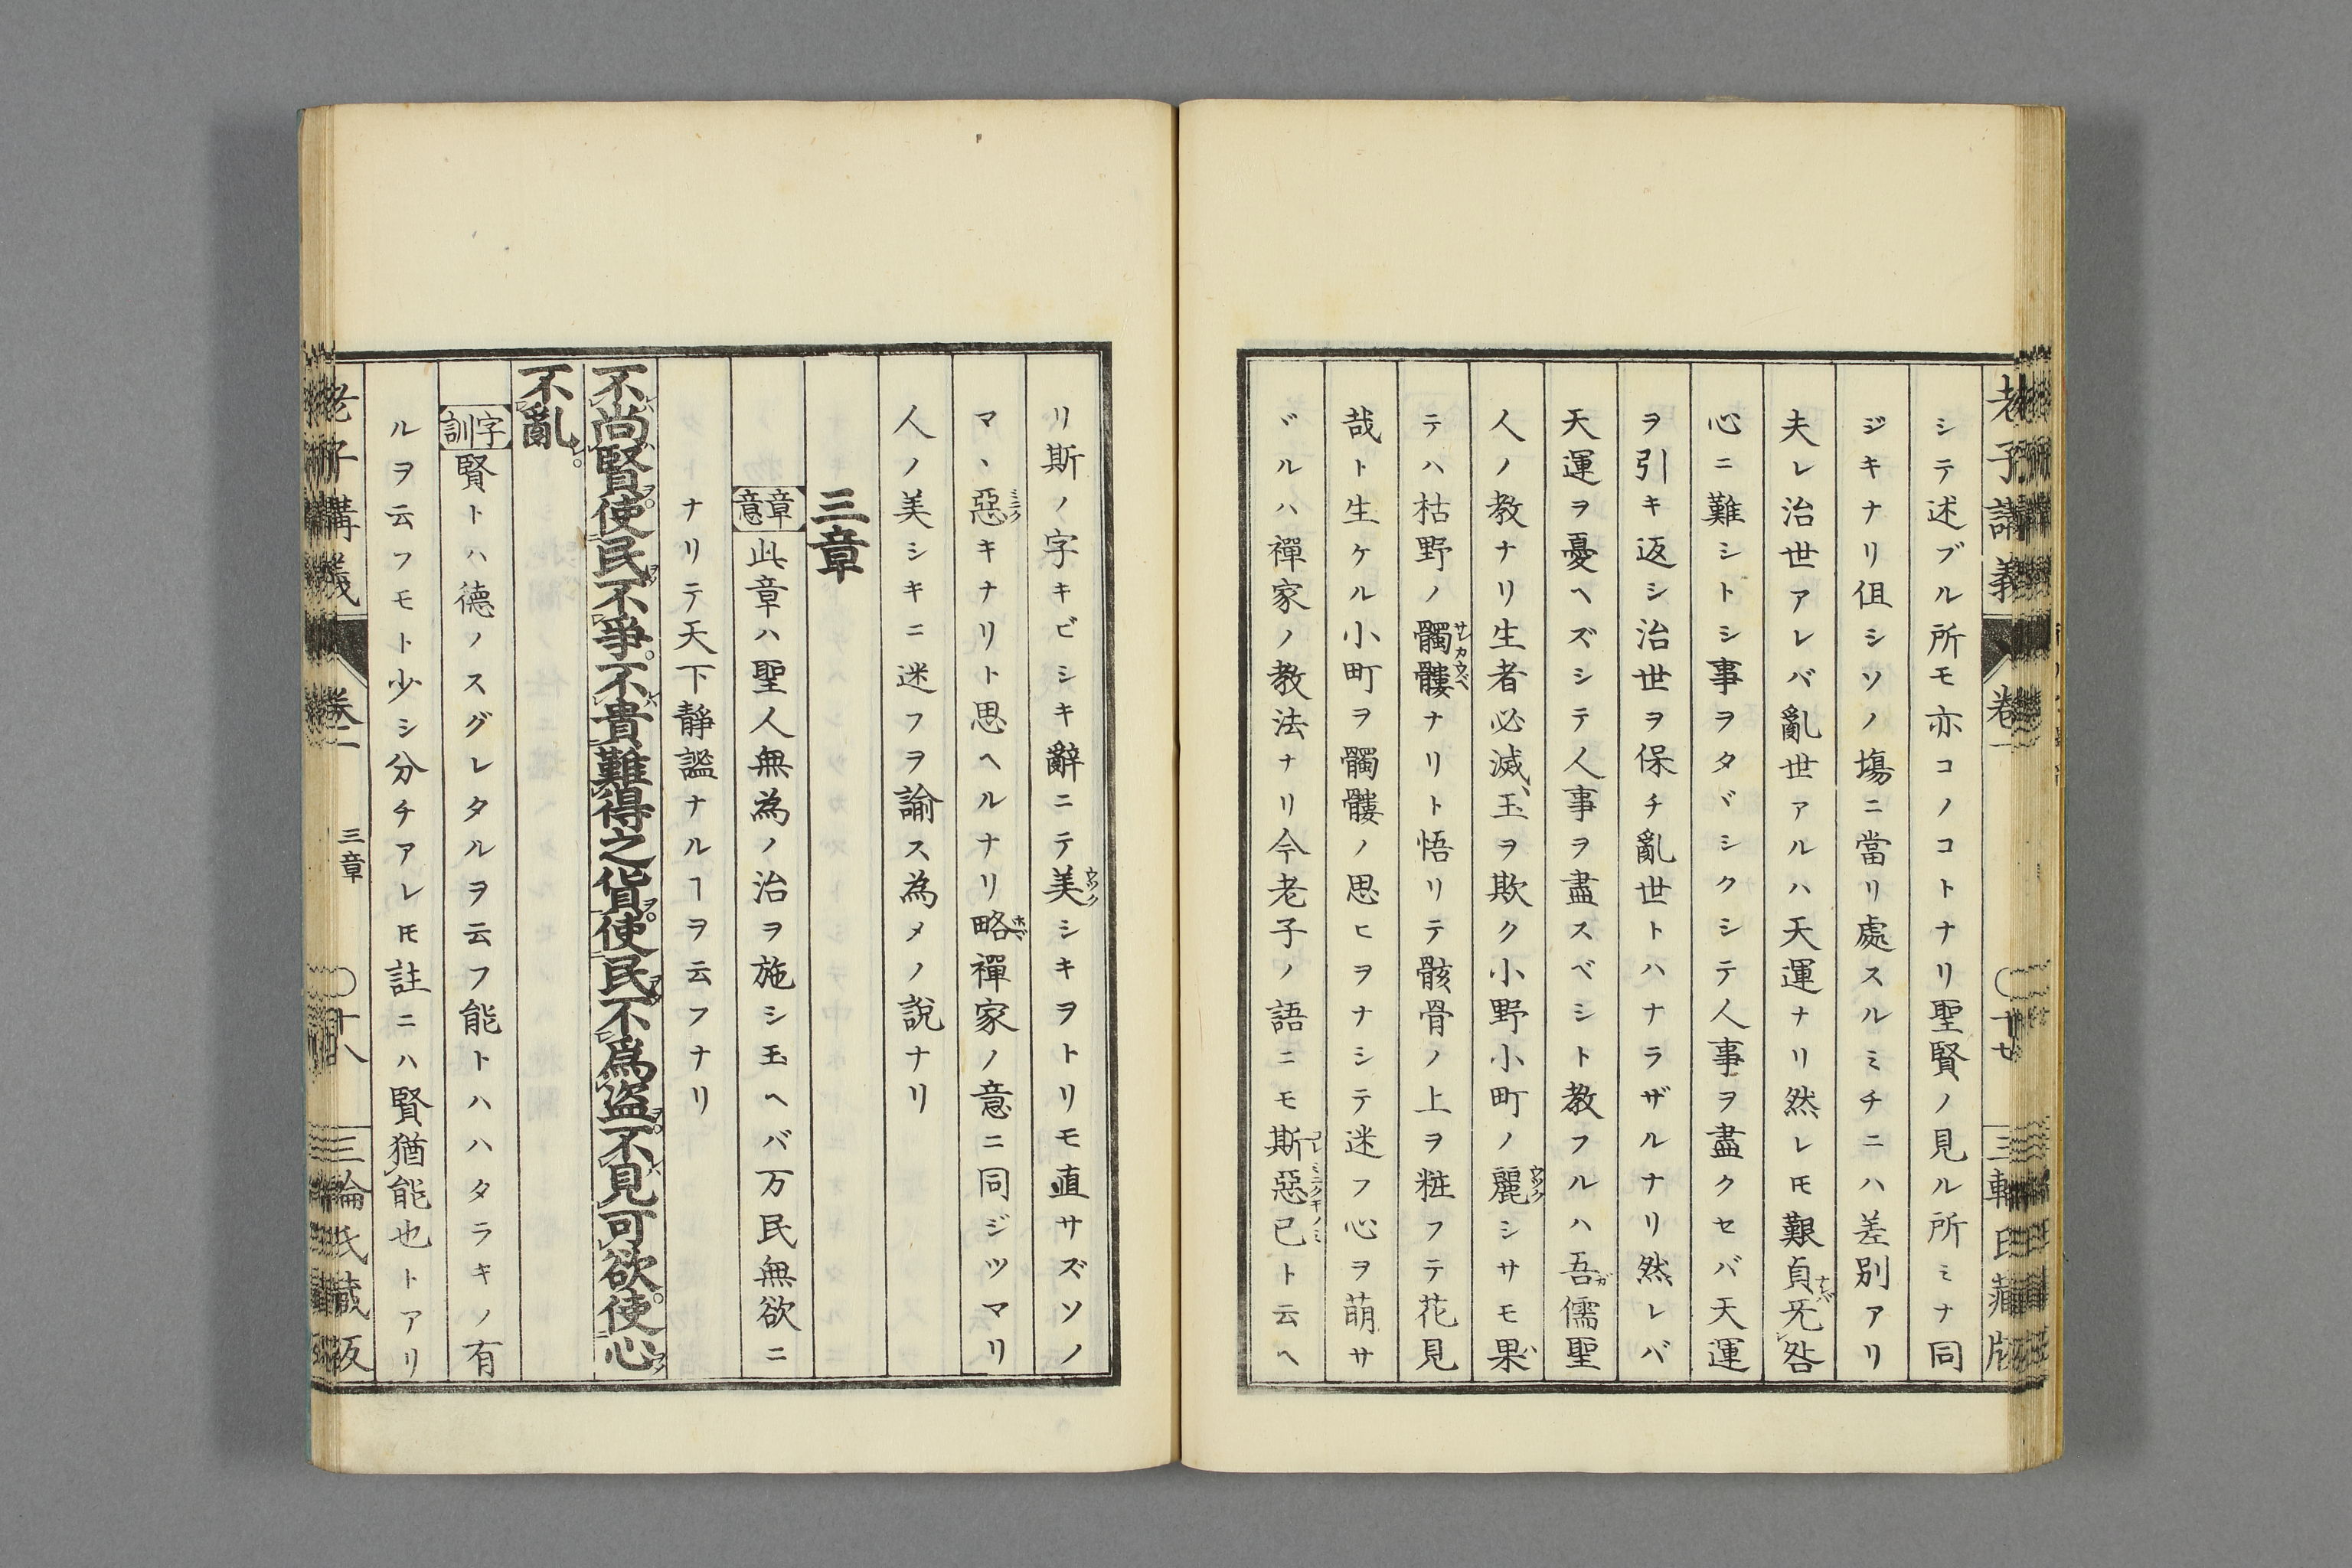 老子講義 卷一 〇十七 三輪氏藏版
シテ述ブル所モ亦コノコトナリ聖賢ノ見ル所ミナ同
ジキナリ伹シソノ塲ニ當リ處スルミチニハ差別アリ
夫レ治世アレバ亂世アルハ天運ナリ然レ𪜈艱貞ナレバ旡咎
心ニ難シトシ事ヲタヾシクシテ人事ヲ盡クセバ天運
ヲ引キ返シ治世ヲ保チ亂世トハナラザルナリ然レバ
天運ヲ憂ヘズシテ人事ヲ盡スベシト教フルハ吾ガ儒聖
人ノ教ナリ生者必滅、玉ヲ欺ク小野小町ノ麗ウツクシサモ果ハ
テハ枯野ノ髑髏サレカウベナリト悟リテ骸骨ノ上ヲ粧フテ花見
哉ト生ケル小町ヲ髑髏ノ思ヒヲナシテ迷フ心ヲ萌サ
ヾルハ禪家ノ教法ナリ今老子ノ語ニモ斯惡已コレミニクキノミト云ヘ
リ斯ノ字キビシキ辭ニテ美ウツクシキヲトリモ直サズソノ
マヽ惡ミニクキナリト思ヘルナリ略ホヾ禪家ノ意ニ同ジツマリ
人ノ美シキニ迷フヲ諭ス為メノ說ナリ
三章
章意 此章ハ聖人無為ノ治ヲ施シ玉ヘバ万民無欲ニ
ナリテ天下靜謐ナルヿヲ云フナリ
不尚賢使民不爭不貴難得之貨使民不爲盜不見可欲使心
不亂
字訓 賢トハ德ノスグレタルヲ云フ能トハハタラキノ有
ルヲ云フモト少シ分チアレ𪜈註ニハ賢猶能也トアリ
老子講義 卷一 三章 〇十八 三輪氏藏版